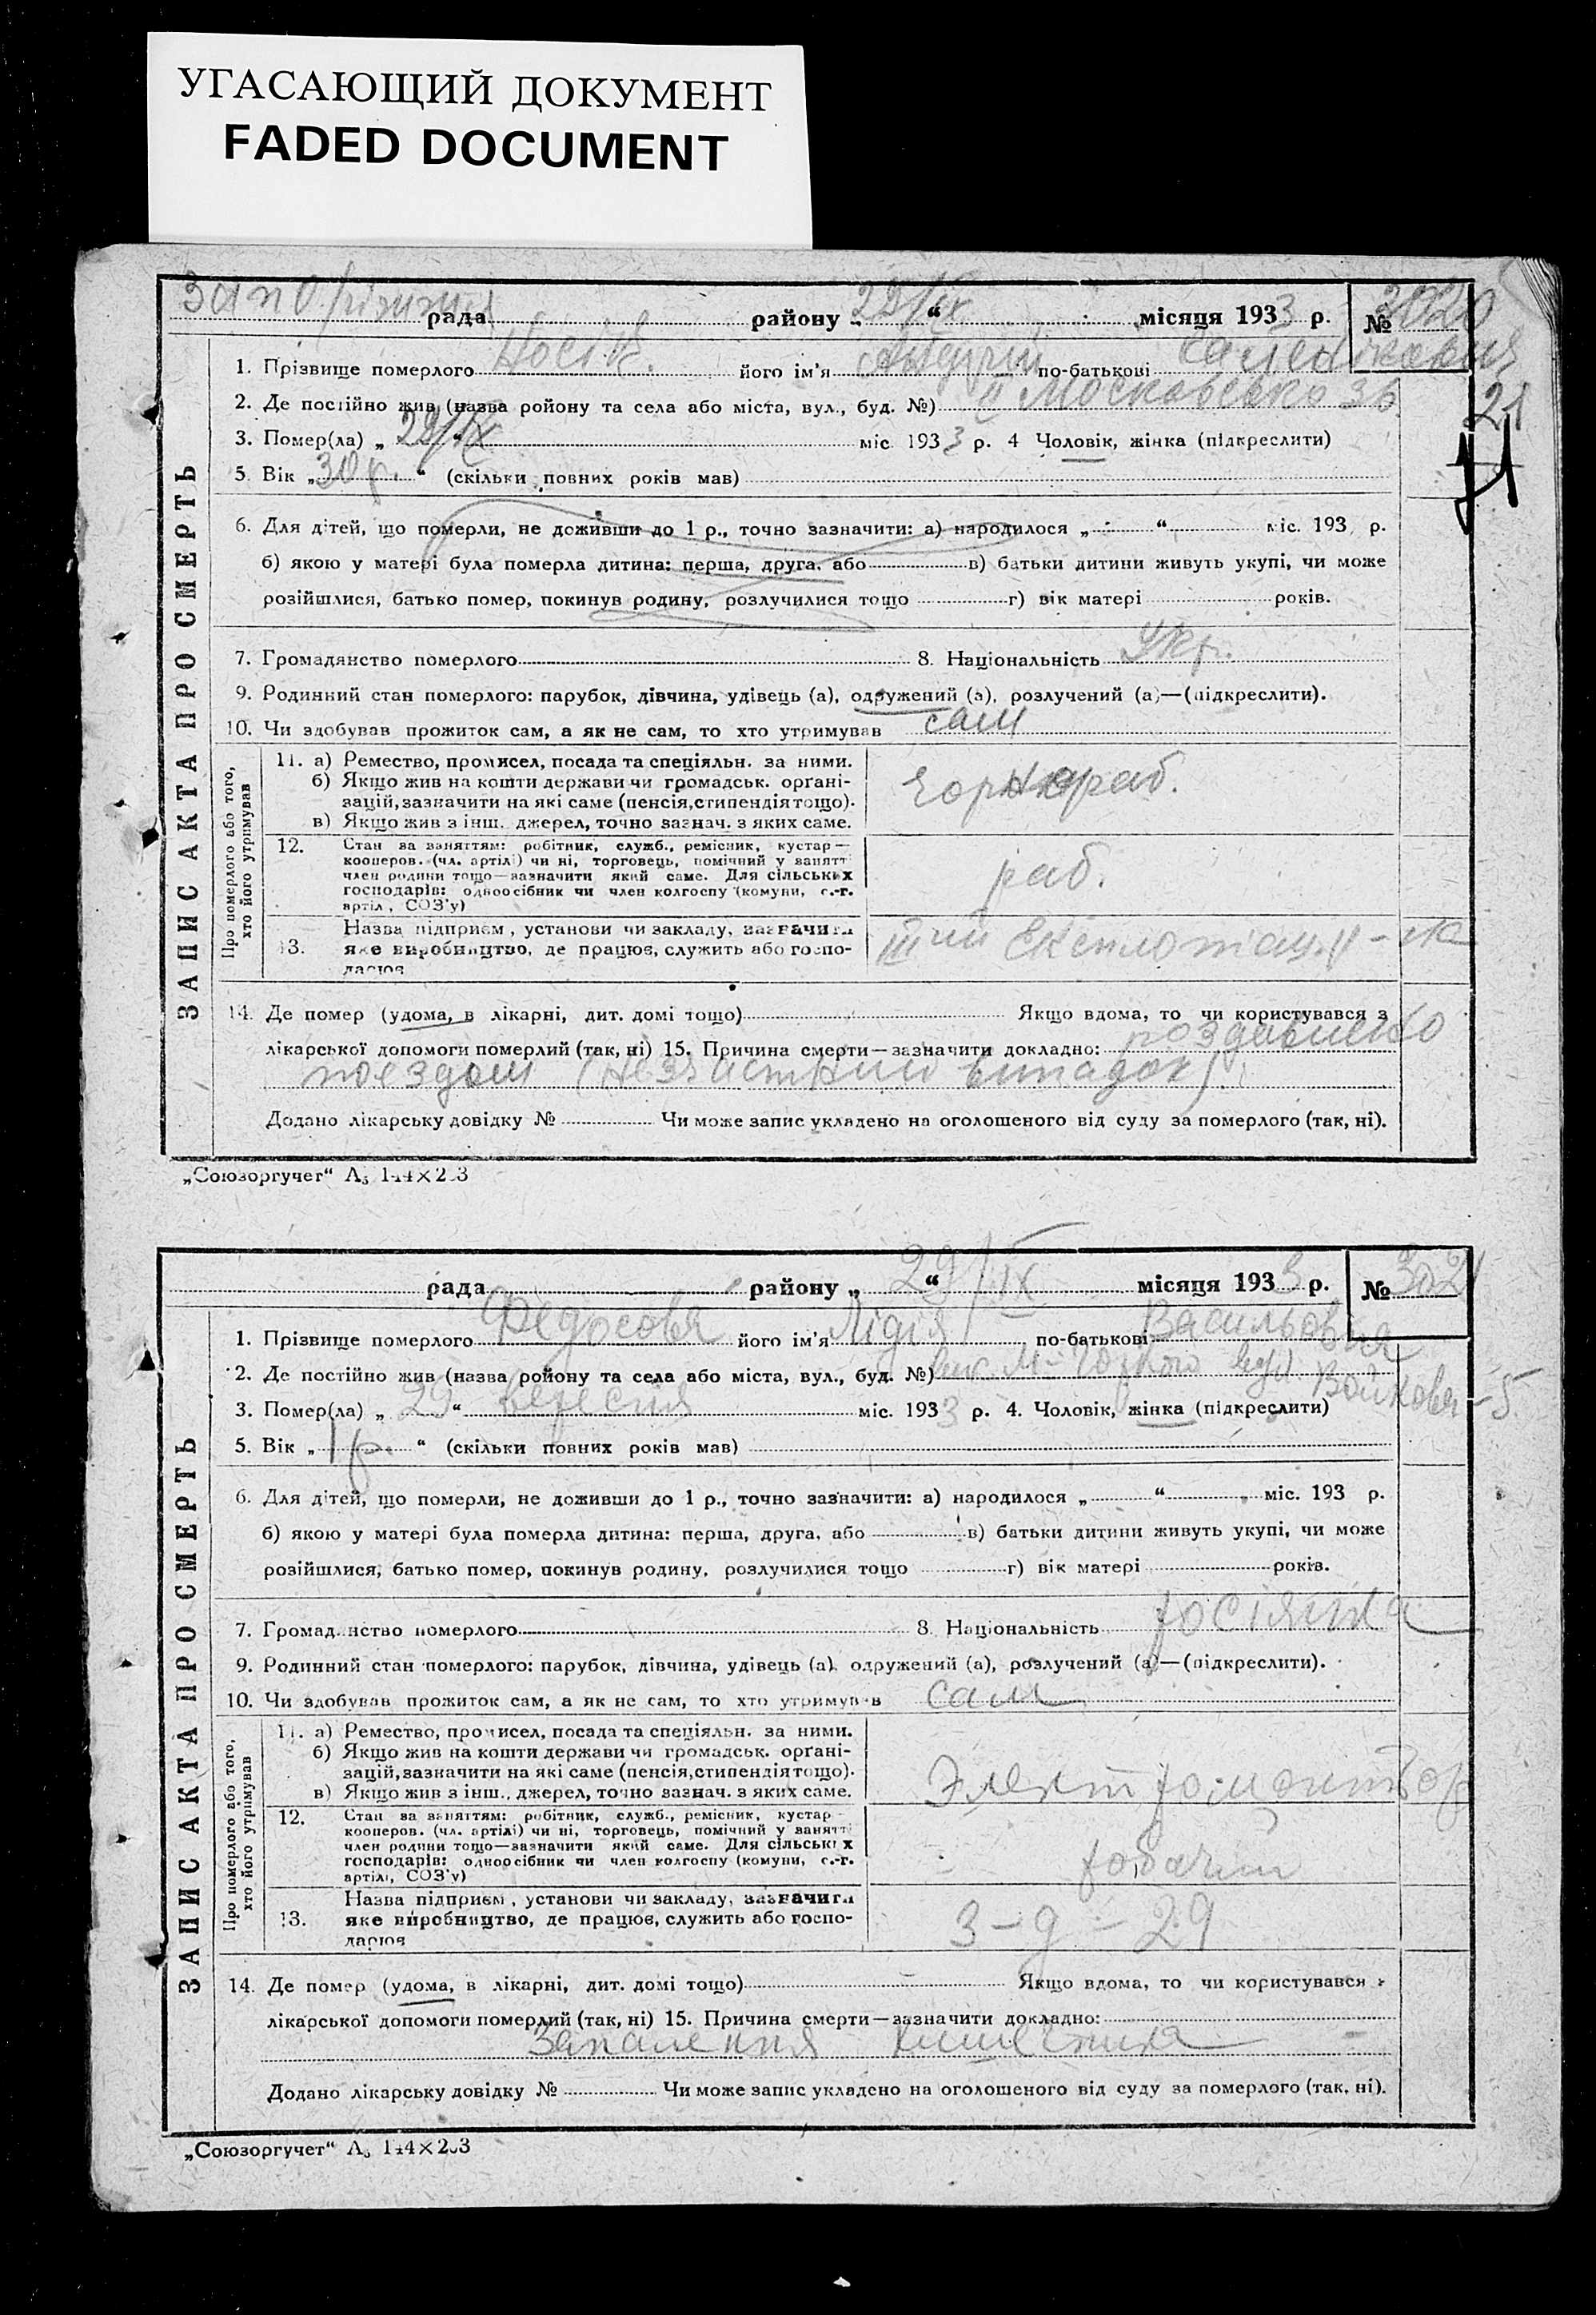 УГАСАЮЩИЙ ДОКУМЕНТ
FADED DOCUMENT
рада района „ 29/IX “ місяця 1933 р. №3020
1. Прізвище померлого Носік. його ім'я Андрій по-батькові
2. Де постійно жив (назва ройону та села або міста, вул., буд. №) Московсько 36
21
3. Помер(ла) „ 29/IX міс. 1933 р. 4 Чоловік, жінка (підкреслити)
5. Вік „30 р. “ (скільки повних років мав)
6. Для дітей, що померли, не доживши до 1 р., точно зазначити: а) народилося „ “ міс. 193 р.
б) якою у матері була померла дитина: перша, друга, або в) батьки дитини живуть укупі, чи може
розійшлися, батько помер, покинув родину, розлучилися тощо г) вік матері років.
7. Громадянство померлого 8. Національність Укр.
9. Родинний стан померлого: парубок, дівчина, удівець (а), одружений (а), розлучений (а)—(підкреслити).
10. Чи здобував прожиток сам, а як не сам, то хто утримував сам
ЗАПИС АКТА ПРО СМЕРТЬ
Про померлого або того, хто його утримував
11. а) Ремество, промисел, посада та спеціяльн. за ними.
б) Якщо жив на кошти держави чи громадськ. орґані-
зацій, зазначити на які саме (пенсія, стипендія тощо).
в) Якщо жив з інш. джерел, точно зазнач. з яких саме.
12. Стан за заняттям: робітник, служб., ремісник, кустар—
кооперов. (чл. артілі) чи ні, торговець, помічний у занятт
член родини тощо—зазначити який саме. Для сільських
господарів: одноосібник чи член колгоспу (комуни, с.-г.
артіл, СОЗ'у)
раб.
13. Назва підприєм, установи чи закладу, зазначити
яке виробництво, де працює, служить або госпо-
дарює
14. Де помер (удома, в лікарні, дит. домі тощо) Якщо вдома, то чи користувався з
лікарської допомоги померлий (так, ні) 15. Причина смерти—зазначити докладно: роздавлено
поездом (незчастний випадок)
Додано лікарську довідку № Чи може запис укладено на оголошеного від суду за померлого (так, ні).
„Союзоргучет“ А₅ 144×203
рада району „ 29/IX “ місяця 1933 р. №3021
1. Прізвище померлого Федосова його ім'я Лідія по-батькові Васильовна
2. Де постійно жив (назва ройону та села або міста, вул., буд. №) Войкова-5
3. Помер(ла) „ 29 “ вересня міс. 1933 р. 4. Чоловік, жінка (підкреслити)
5. Вік „ 1 р. “ (скільки повних років мав)
6. Для дітей, що померли, не доживши до 1 р., точно зазначити: а) народилося „ “ міс. 193 р.
б) якою у матері була померла дитина: перша, друга, або в) батьки дитини живуть укупі, чи може
розійшлися, батько помер, покинув родину, розлучилися тощо г) вік матері років.
7. Громадянство померлого 8. Національність росіянка
9. Родинний стан померлого: парубок, дівчина, удівець (а), одружений (а), розлучений (а)—(підкреслити).
10. Чи здобував прожиток сам, а як не сам, то хто утримував сам
ЗАПИС АКТА ПРО СМЕРТЬ
Про померлого або того, хто його утримував
11. а) Ремество, промисел, посада та спеціяльн. за ними.
б) Якщо жив на кошти держави чи громадськ. орґані-
зацій, зазначити на які саме (пенсія, стипендія тощо).
в) Якщо жив з інш., джерел, точно зазнач. з яких саме.
Электромонтьор
12. Стан за заняттям: робітник, служб., ремісник, кустар-
кооперов. (чл. артілі) чи ні, торговець, помічний у занятті
член родини тощо—зазначити який саме. Для сільських
господарів: одноосібник чи член колгоспу (комуни, с.-г.
артілі, СОЗ'у)
робачий
13. Назва підприєм, установи чи закладу, зазначити
яке виробництво, де працює, служить або госпо-
дарює
3-д-29
14. Де помер (удома, в лікарні, дит. домі тощо) Якщо вдома, то чи користувався з
лікарської допомоги померлий (так, ні) 15. Причина смерти—зазначити докладно:
Запалення кишечника
Додано лікарську довідку № Чи може запис укладено на оголошеного від суду за померлого (так, ні).
„Союзоргучет“ А₅ 144×203